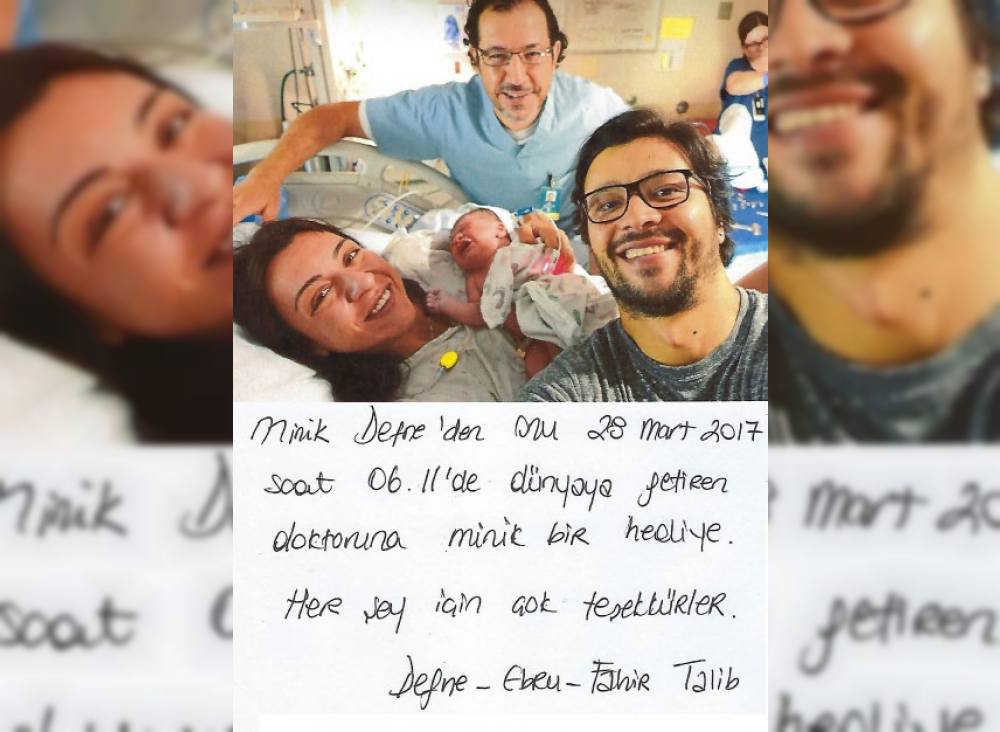 Minik Defne'den onu 28 Mart 2017
saat 06.11'de dünyaya getiren
doktoruna minik bir hediye.
Her şey için çok teşekkürler.
Defne - Ebru - Fahir Talib